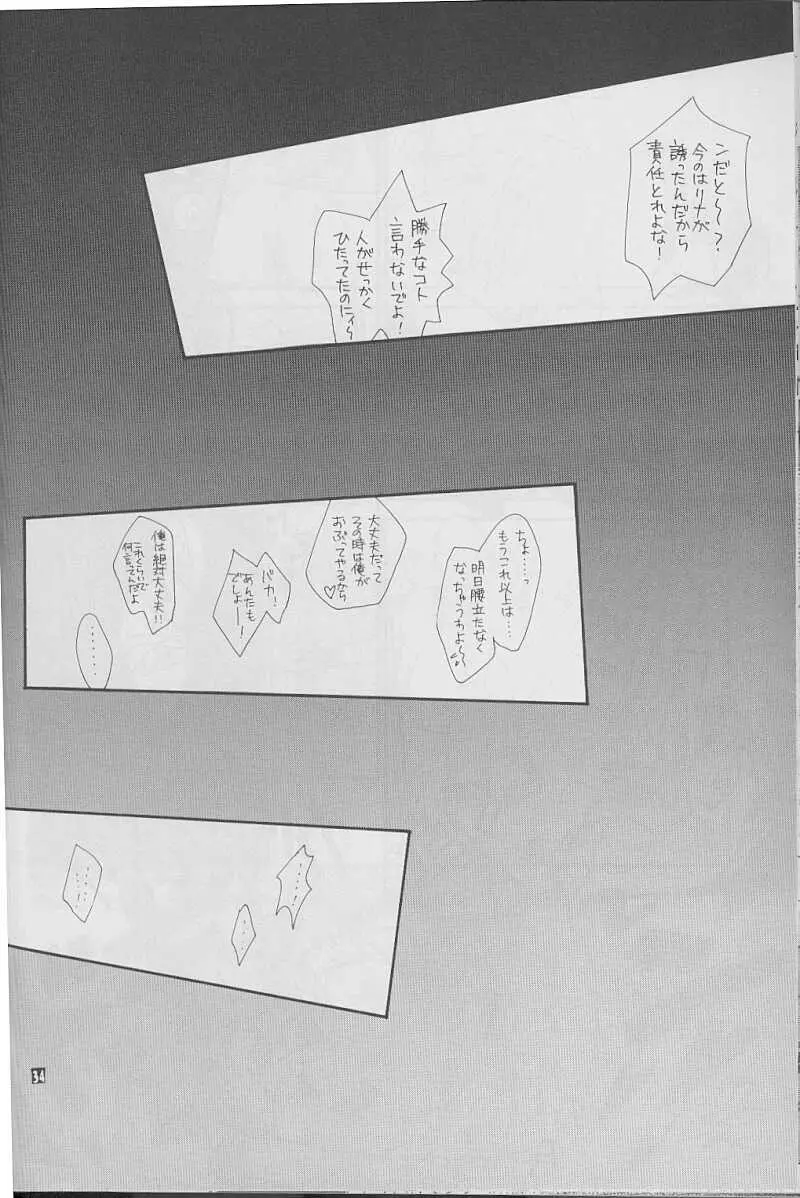 ンだと～？
今のはリナが
誘ったんだから
責任とれよな！
勝手なコト
言わないでよ！
人がせっかく
ひたってたのにィ～
ちょ……っ
もうこれ以上は…
明日腰立たなく
なっちゃうわよ～
大丈夫だって
その時は俺が
おぶってやるから♡
バカ！
あんたも
でしょー！
俺は絶対大丈夫！！
これくらいで
何言ってんだよ
……
…！
…
……！
34